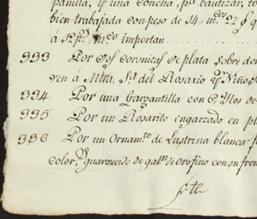 panilla, y una Concha, pa. bautizar, to
bien trabajada con peso de 14 mcs. 2½ q
importan
333 Por dos Coronitas de plata sobre do
ven á Ntra. Sa. del Rosario y Niño
334 Por una Gargantilla con 6 hilos de
335 Por un Rosarito engarzado en pl
336 Por un Ornamto. de Lustrina blanca
color, guarnecido de galon de oro fino con su fren